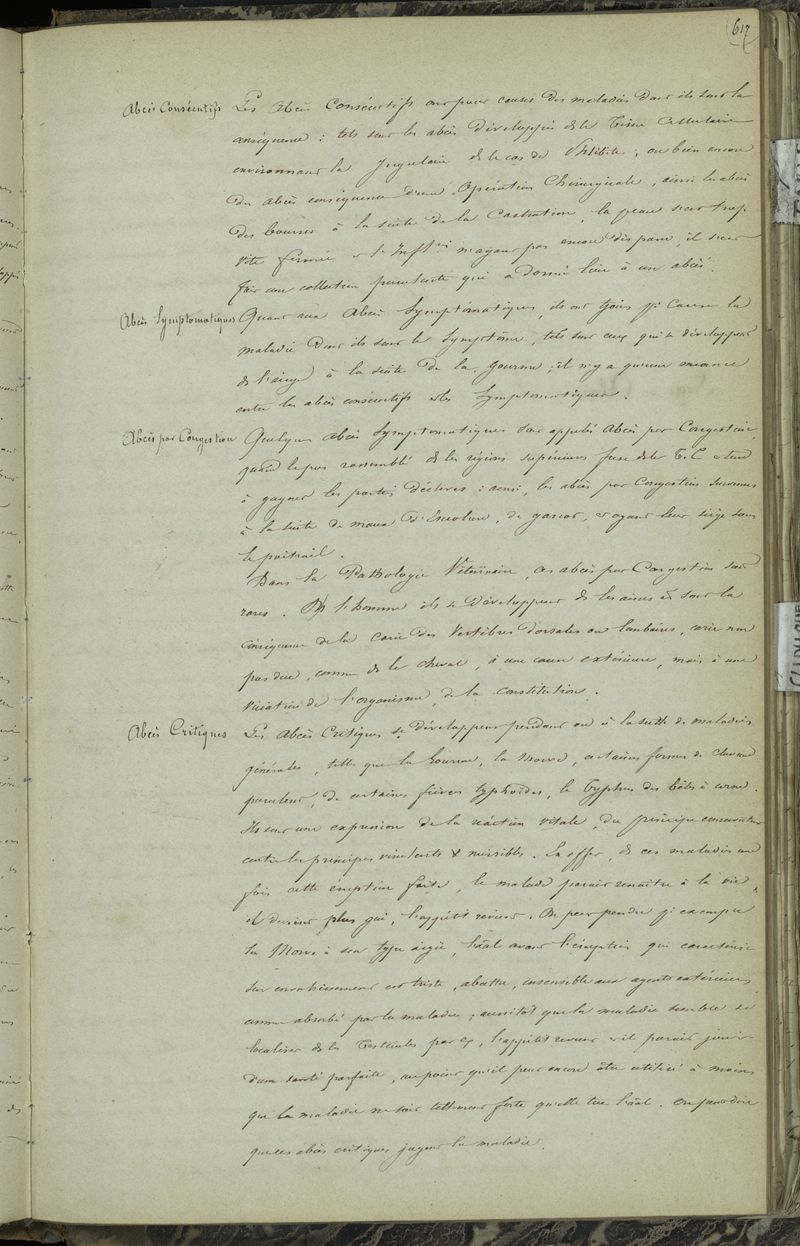 617
Abcès Consécutifs Les Abcès Consécutifs ont pour causes des maladies dont ils sont la
conséquence : tels sont les abcès développés ds le Tissu Cellulaire
environnant la Jugulaire ds le cas de Phlébite ; ou bien encore
des abcès conséquence d'une Opération Chirurgicale, ainsi les abcès
des bourses à la suite de la Castration, la peau s'est trop
vite fermée et l'Inflon n'ayant pas encore disparu, il s'est
fait une collection purulente qui a donné lieu à un abcès.
Abcès Symptomatiques Quant aux Abcès Symptômatiques, ils ont tjours pr Cause la
maladie dont ils sont le Symptôme, tels sont ceux qui se développent
ds l'auge à la suite de la gourme ; il n'y a qu'une nuance
entre les abcès consécutifs et les Symptomatiques.
Abcès par Congestion Quelques abcès Symptomatiques sont appelés Abcès par Congestion,
quand le pus rassemblé ds les régions supérieures fuse ds le T. C. et tend
à gagner les parties déclives : ainsi, les abcès par Congestion survenus
à la suite de maux d'Encolure, de garrot, et ayant leur siège sous
le poitrail.
Dans la Pathologie Vétérinaire, ces abcès par Congestion sont
rares. Ds l'homme ils se développent ds les aines et sont la
conséquence de la carie des Vertèbres dorsales ou lombaires, carie non
pas due, comme ds le cheval, à une cause extérieure, mais à une
viciation de l'organisme, de la constitution.
Abcès Critiques Les Abcès Critiques se développent pendant ou à la suite de maladies
générales, telles que la Gourme, la Morve, certaines formes de clavelée
purulente, de certaines fièvres typhoïdes, le Typhus des bêtes à corne.
Ils sont une expression de la réaction vitale, du principe conservateur
contre les principes virulents & nuisibles. En effet, ds ces maladies une
fois cette éruption faite, le malade parait renaître à la vie,
il devient plus gai, l'appétit revient. On peut prendre pr exemple
la Morve à son type aigu, l'aal avant l'éruption qui caractérise
son envahissement est triste, abattu, insensible aux agents extérieurs,
comme absorbé par la maladie ; aussitôt que la maladie semble se
localiser ds les Testicules par ex, l'appétit revient et il parait jouir
d'une santé parfaite, au point qu'il peut encore être utilisé à moins
que la maladie ne soit tellement forte qu'elle tue l'aal. On peut dire
que ces abcès critiques jugent la maladie.